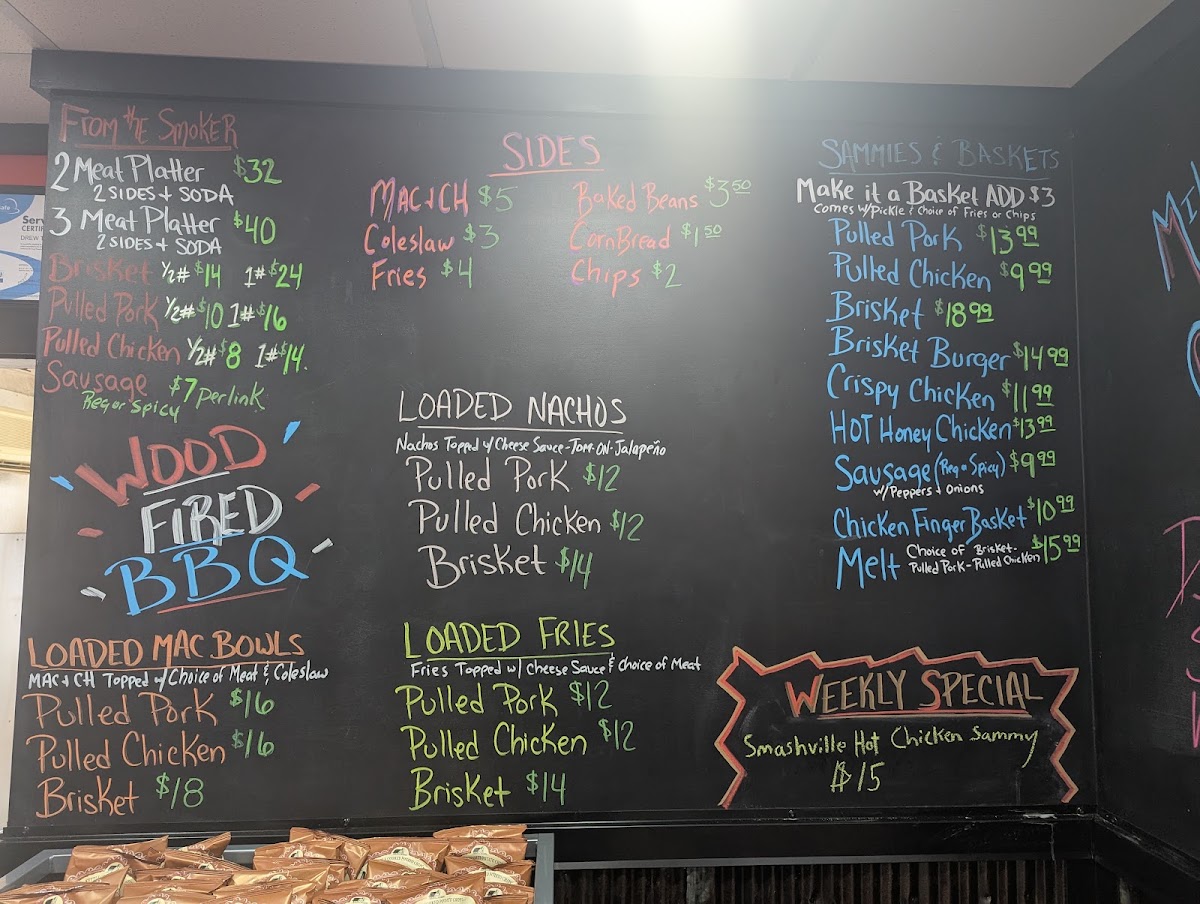 From the Smoker
2 Meat Platter $32
2 SIDES + SODA
3 Meat Platter $40
2 SIDES + SODA
Brisket ½# $14 1# $24
Pulled Pork ½# $10 1# $16
Pulled Chicken ½# $8 1# $14.
Sausage $7 per link
Reg or Spicy
WOOD
FIRED
BBQ
LOADED MAC BOWLS
MAC + CH Topped w/ Choice of Meat & Coleslaw
Pulled Pork $16
Pulled Chicken $16
Brisket $18
SIDES
MAC + CH $5
Coleslaw $3
Fries $4
Baked Beans $3.50
CornBread $1.50
Chips $2
LOADED NACHOS
Nachos Topped w/ Cheese Sauce-Tom-ON-Jalapeño
Pulled Pork $12
Pulled Chicken $12
Brisket $14
LOADED FRIES
Fries Topped w/ Cheese Sauce & Choice of Meat
Pulled Pork $12
Pulled Chicken $12
Brisket $14
SAMMIES & BASKETS
Make it a Basket ADD $3
Comes w/Pickle & Choice of Fries or Chips
Pulled Pork $13.99
Pulled Chicken $9.99
Brisket $18.99
Brisket Burger $14.99
Crispy Chicken $11.99
HOT Honey Chicken $13.99
Sausage (Reg o Spicy) $9.99
w/ Peppers + Onions
Chicken Finger Basket $10.99
Melt Choice of Brisket- $15.99
Pulled Pork-Pulled Chicken
WEEKLY SPECIAL
Smashville Hot Chicken Sammy
$15